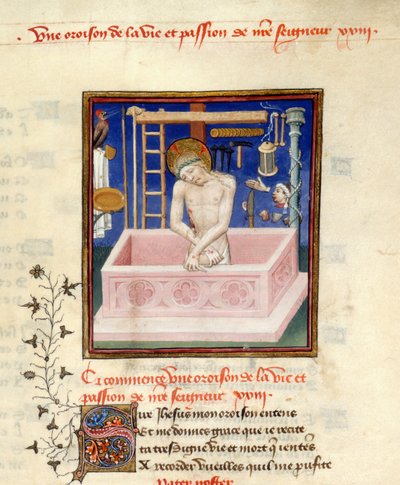 Vne oroison de la vie et passion de nr̃e seigneur xxiii.
Cy commence vne oroison de la vie et
passion de nr̃e seigneur. xxiii.
Sire Ihesus mon oroison entens
Et me donnes grace que ie recite
ta tresdigne vie et mort
Recorder vueilles quil me pufite
Pater noster